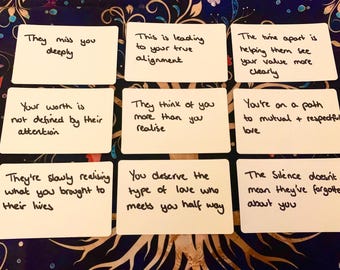 They miss you
deeply
This is leading
to your true
alignment
The time apart is
helping them see
your value more
clearly
Your worth is
not defined by their
attention
They think of you
more than you
realise
You're on a path
to mutual + respectful
love
They're slowly realising
what you brought to
their lives
You deserve the
type of love who
meets you half way
The Silence doesn't
mean they've forgotten
about you